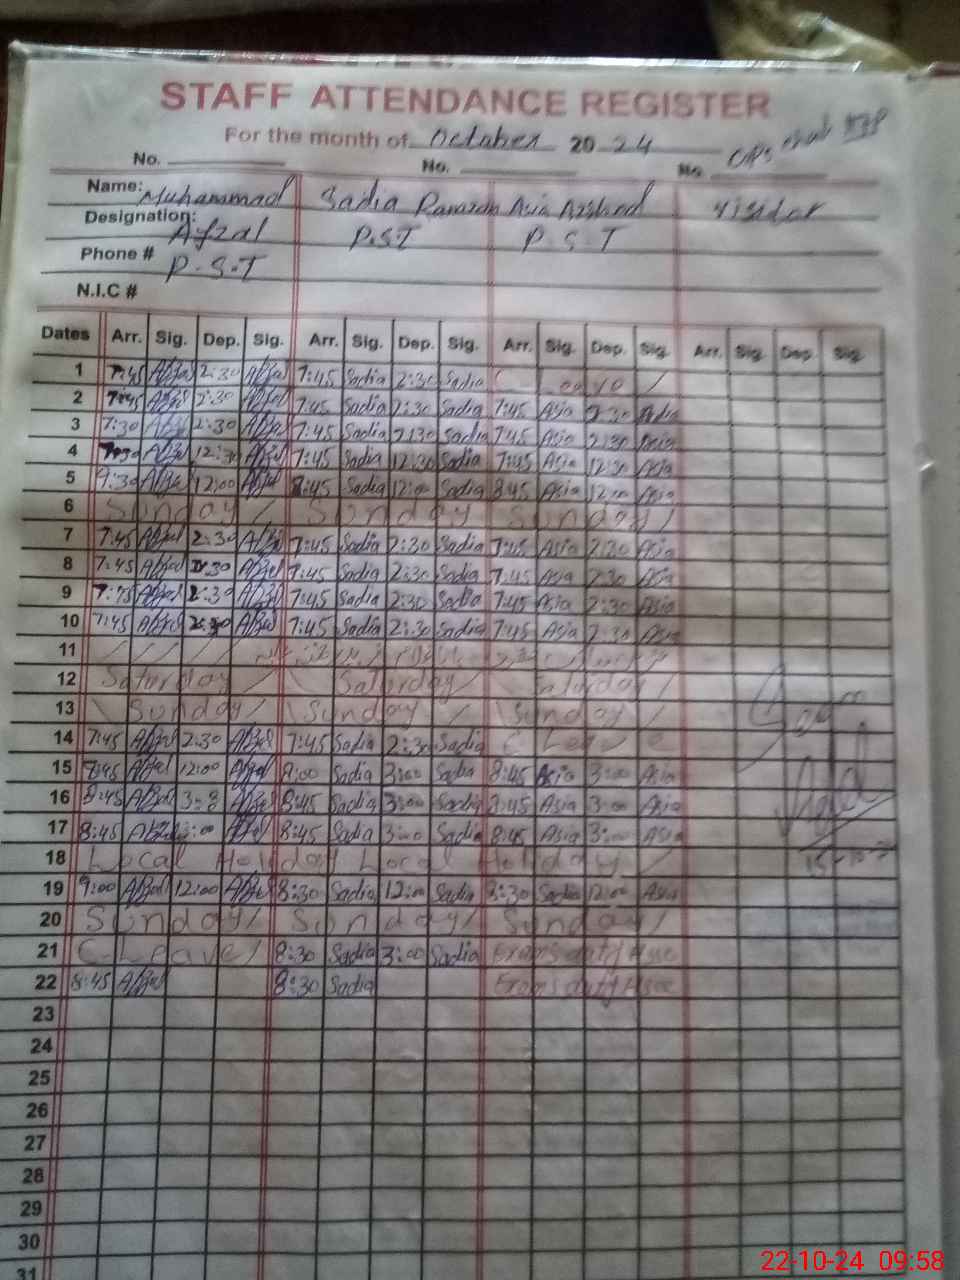 STAFF ATTENDANCE REGISTER
For the month of October 20 24
No. No. No.
Name: Muhammad Sadia Ramzan Asia Arshad visitor
Designation: Afzal P.S.T P.S.T
Phone # P.S.T
N.I.C #
Dates Arr. Sig. Dep. Sig. Arr. Sig. Dep. Sig. Arr. Sig. Dep. Sig. Arr. Sig. Dep. Sig.
1 7:45 Afzal 2:30 Afzal 7:45 Sadia 2:30 Sadia C Leave /
2 7:45 Afzal 2:30 Afzal 7:45 Sadia 2:30 Sadia 7:45 Asia 2:30 Asia
3 7:30 Afzal 2:30 Afzal 7:45 Sadia 2:30 Sadia 7:45 Asia 2:30 Asia
4 7:30 Afzal 12:30 Afzal 7:45 Sadia 12:30 Sadia 7:45 Asia 12:30 Asia
5 Afzal 12:00 Afzal 8:45 Sadia 12:00 Sadia 8:45 Asia 12:00 Asia
6 Sunday / Sunday Sunday /
7 7:45 Afzal 2:30 Afzal 7:45 Sadia 2:30 Sadia 7:45 Asia 2:30 Asia
8 7:45 Afzal 2:30 Afzal 7:45 Sadia 2:30 Sadia 7:45 Asia 2:30 Asia
9 7:45 Afzal 2:30 Afzal 7:45 Sadia 2:30 Sadia 7:45 Asia 2:30 Asia
10 7:45 Afzal 2:30 Afzal 7:45 Sadia 2:30 Sadia 7:45 Asia 2:30 Asia
11
12 Saturday / \ Saturday / \ Saturday /
13 \ Sunday / \ Sunday / \ Sunday /
14 7:45 Afzal 2:30 Afzal 7:45 Sadia 2:30 Sadia C Leave
15 8:45 Afzal 12:00 Afzal 9:00 Sadia 3:00 Sadia 8:45 Asia 3:00 Asia
16 8:45 Afzal Afzal 8:45 Sadia 3:00 Sadia 8:45 Asia 3:00 Asia
17 8:45 Afzal 3:00 Afzal 8:45 Sadia 3:00 Sadia 8:45 Asia 3:00 Asia
18 Local Holiday Local Holiday /
19 9:00 Afzal 12:00 Afzal 8:30 Sadia 12:00 Sadia 8:30 Sadia 12:00 Asia
20 Sunday / Sunday / Sunday /
21 C-Leave / 8:30 Sadia 3:00 Sadia Exams duty
22 8:45 Afzal 8:30 Sadia Exams duty
23
24
25
26
27
28
29
30
31
22-10-24 09:58